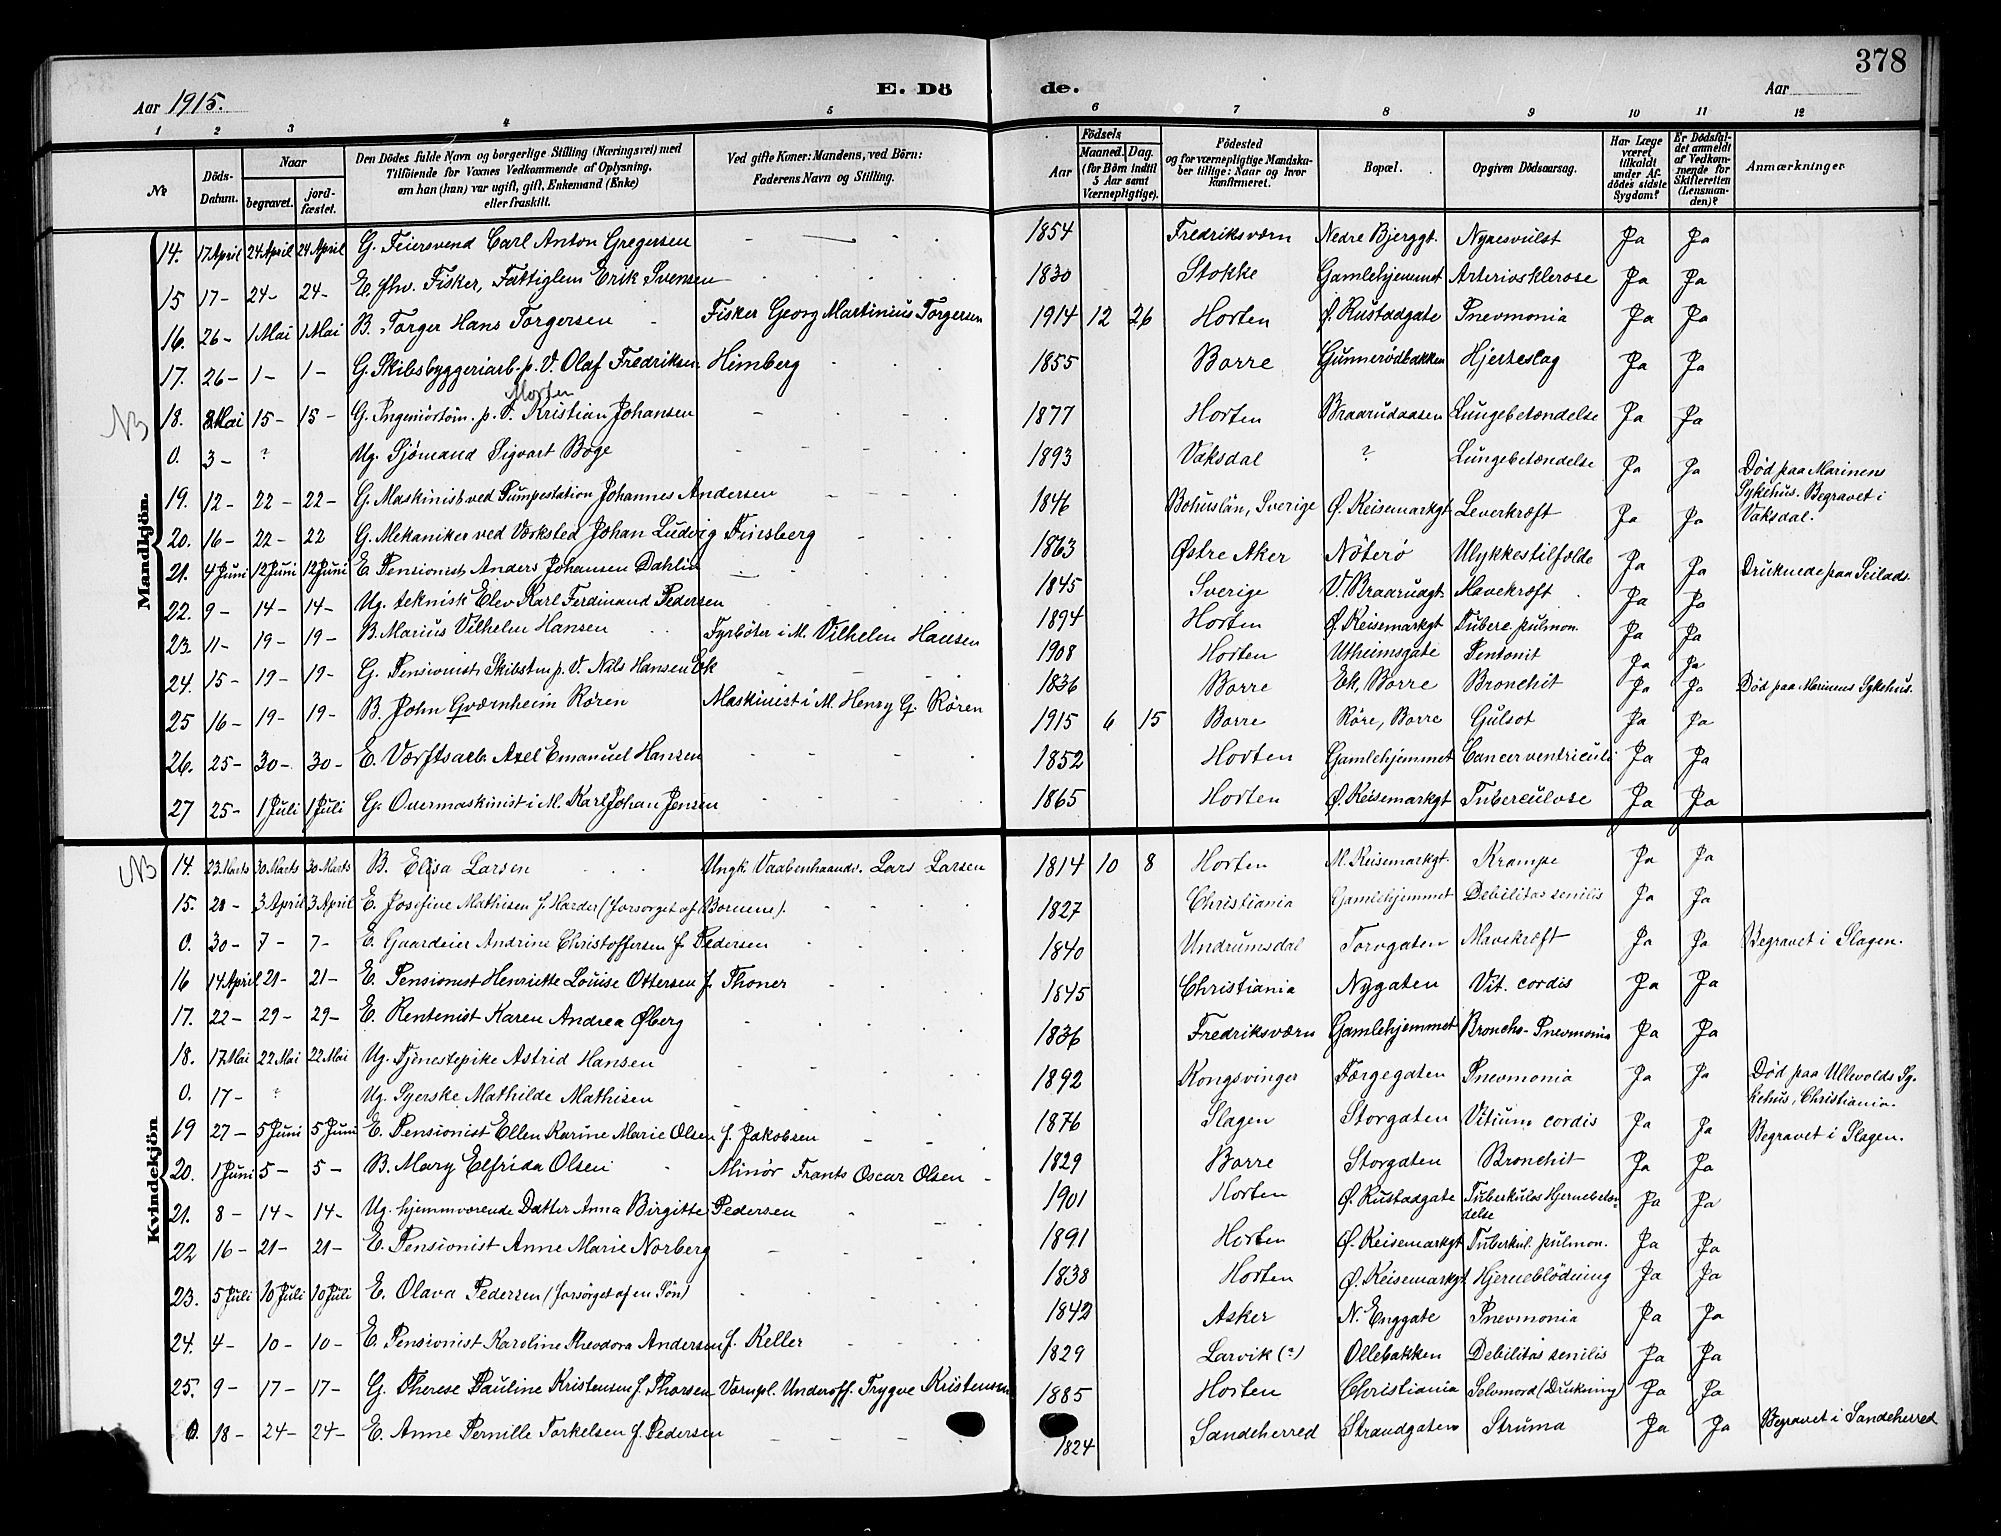 378
Aar 1915. E. Dö de. Aar
1 2 3 4 5 6 7 8 9 10 11 12
№ Döds-Datum. Naar begravet. jordfæstet. Den Dödes fulde Navn og borgerlige Stilling (Næringsvei) med Tilföiende for Voxnes Vedkommende af Oplysning, om han (hun) var ugift, gift, Enkemand (Enke) eller fraskilt. Ved gifte Koner: Mandens, ved Börn: Faderens Navn og Stilling. Födsels Aar Maaned. Dag. (for Börn indtil 5 Aar samt Værnepligtige). Födested og for værnepligtige Mandskaber tillige: Naar og hvor konfirmeret. Bopæl. Opgiven Dödsaarsag. Har Læge været tilkaldt under Afdödes sidste Sygdom? Er Dödsfaldet anmeldt af Vedkommende for Skifteretten (Lensmanden)? Anmærkninger
Mandkjön.
14. 17 April 24 April 24 April G. Feiersvend Carl Anton Gregersen 1854 Fredriksværn Nedre Bjerggt. Nyresvulst Ja Ja
15 17- 24- 24- E. fhv. Fisker, Fattiglem Erik Svensen 1830 Stokke Gamlehjemmet Arteriosklerose Ja Ja
16. 26- 1 Mai 1 Mai B. Torger Hans Torgersen Fisker Georg Martinius Torgersen 1914 12 26 Horten Ø. Rustadgate Pnevmonia Ja Ja
17. 26- 1- 1- G. Skibsbyggeriarb. p. V. Olaf Fredriksen Himberg 1855 Borre Gunnerödbakken Hjerteslag Ja Ja
Morten
NB 18. 8 Mai 15- 15- G. Ingeniörtöm. p. V. Kristian Johansen 1877 Horten Braarudaasen Lungebetændelse Ja Ja
0. 3- ? Ug. Sjömand Sigvart Boge 1893 Vaksdal ? Lungebetændelse Ja Ja Död paa Marinens Sykehus. Begravet i Vaksdal.
19. 12- 22- 22- G. Maskinist ved Pumpestation Johannes Andersen 1846 Bohuslän, Sverige Ø. Keisemarkgt Leverkræft Ja Ja
20. 16- 22- 22 G. Mekaniker ved Værksted Johan Ludvig Finsberg 1863 Østre Aker Nöterö Ulykkestilfælde Ja Ja Druknede paa Seilads.
21. 4 Juni 12 Juni 12 Juni E. Pensionist Anders Johansen Dahlin 1845 Sverige V. Braarudgt. Mavekræft Ja Ja
22. 9- 14- 14- Ug. teknisk Elev Karl Ferdinand Pedersen 1894 Horten Ø. Keisemarkgt Tuberc pulmon. Ja Ja
23. 11- 19- 19- B. Marius Vilhelm Hansen Fyrböter i M. Vilhelm Hansen 1908 Horten Utheimsgate Peritonit Ja Ja
24. 15- 19- 19- G. Pensionist, Skibstm p. V. Nils Hansen Ek 1836 Borre Ek, Borre Bronchit Ja Ja Död paa Marinens Sykehus.
25 16- 19- 19- B. John Gværnheim Rören Maskinist i M. Henry G. Rören 1915 6 15 Borre Röre, Borre Gulsot Ja Ja
26. 25- 30- 30- E. Værftsarb. Axel Emanuel Hansen 1852 Horten Gamlehjemmet Cancer ventriculi Ja Ja
27 25- 1 Juli 1 Juli G. Overmaskinist i M. Karl Johan Jensen 1865 Horten Ø. Keisemarkgt Tuberculose Ja Ja
Kvindekjön
NB 14. 23 Marts 30 Marts 30 Marts B. Elisa Larsen Ungk. Vaabenhaandv. Lars Larsen 1814 10 8 Horten M. Keisemarkgt. Krampe Ja Ja
15. 28- 3 April 3 April E. Josefine Mathisen f. Harder (forsorget af Börnene). 1827 Christiania Gamlehjemmet Debilitas senilis Ja Ja
0. 30- 7- 7- E. Gaardeier Andrine Christoffersen f. Pedersen 1840 Undrumsdal Torvgaten Mavekræft Ja Ja Begravet i Slagen.
16 14 April 21- 21- E. Pensionist Henriette Louise Ottersen f. Thoner 1845 Christiania Nygaten Vit. cordis Ja Ja
17. 22- 29- 29- E. Rentenist Karen Andrea Øberg 1836 Fredriksværn Gamlehjemmet Broncho-Pnevmonia Ja Ja
18. 17 Mai 22 Mai 22 Mai Ug. Tjenestepike Astrid Hansen 1892 Kongsvinger Færgegaten Pnevmonia Ja Ja Död paa Ullevolds Sykehus, Christiania.
0. 17- ? Ug. Syerske Mathilde Mathisen 1876 Slagen Storgaten Vitium cordis Ja Ja Begravet i Slagen.
19 27- 5 Juni 5 Juni E. Pensionist Ellen Karine Marie Olsen f. Jakobsen 1829 Borre Storgaten Bronchit Ja Ja
20. 1 Juni 5- 5- B. Mary Elfrida Olsen Minör Frants Oscar Olsen 1901 Horten Ø. Rustadgate Tuberkuløs Hjernebetændelse Ja Ja
21. 8- 14- 14- Ug. hjemmværende Datter Anna Birgitte Pedersen 1891 Horten Ø. Keisemarkgt Tuberkul. pulmon. Ja Ja
22 16- 21- 21- E. Pensionist Anne Marie Norberg 1838 Horten Ø. Keisemarkgt Hjerneblödning Ja Ja
23. 5 Juli 10 Juli 10 Juli E. Olava Pedersen (forsörget af en Sön) 1842 Asker N. Enggate Pnevmonia Ja Ja
24. 4- 10- 10- E. Pensionist Karoline Theodora Andersen f. Keller 1829 Larvik (?) Ollebakken Debilitas senilis Ja Ja
25. 9- 17- 17- G. Therese Pauline Kristensen f. Thorsen Værnpl. Underoff. Trygve Kristensen 1885 Horten Christiania Selvmord (Drukning) Ja Ja
0. 18- 24- 24- E. Anne Pernille Torkelsen f. Pedersen 1824 Sandeherred Strandgaten Struma Ja Ja Begravet i Sandeherred